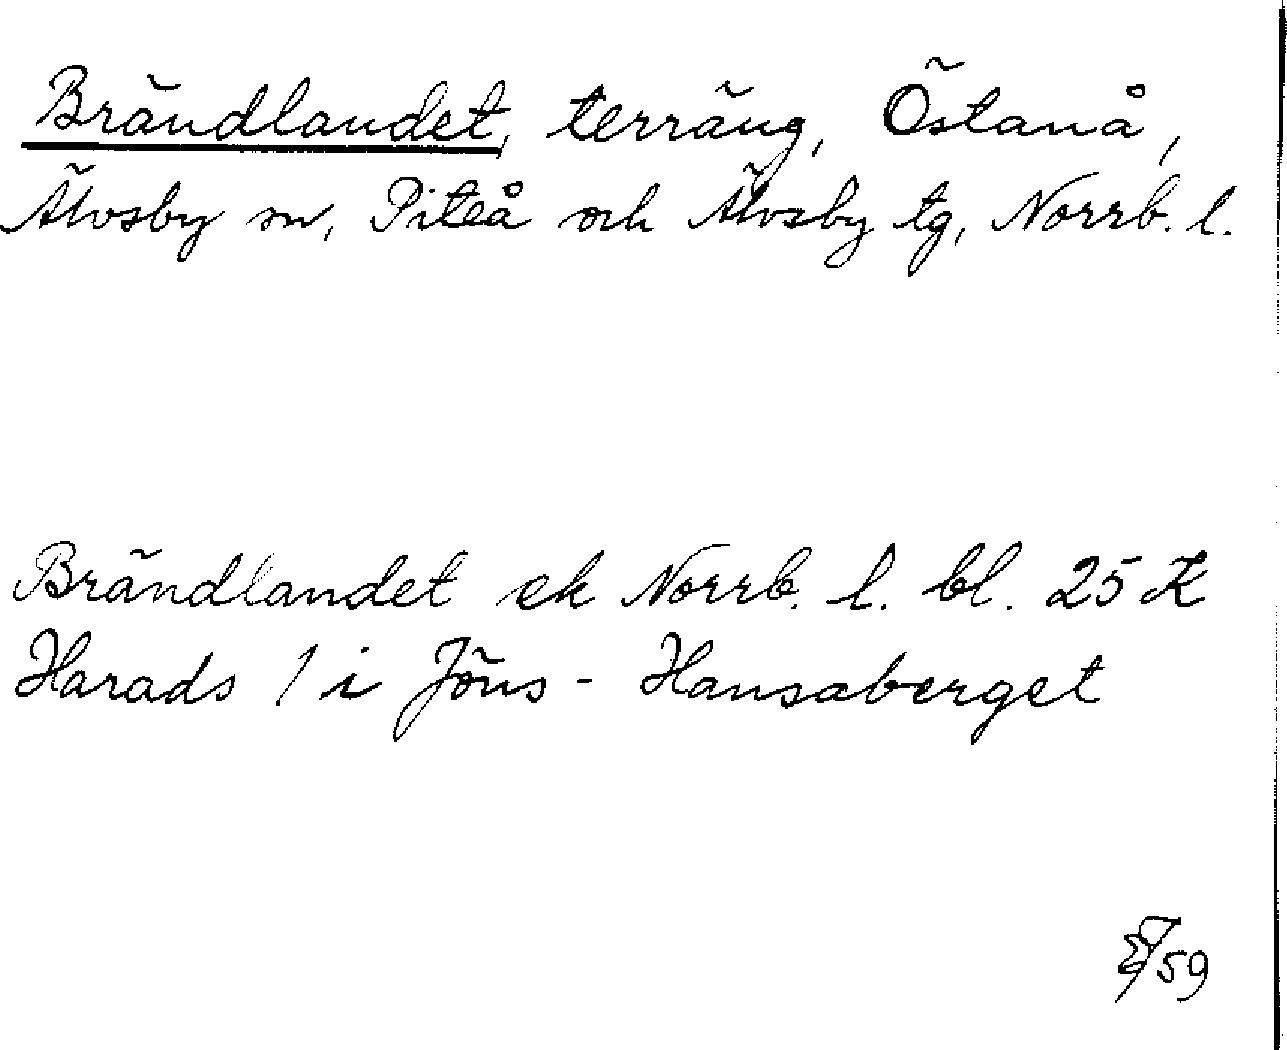 Brändlandet, terräng, Östanå,
Älvsby sn, Piteå och Älvsby tg, Norrb. l.
Brändlandet ek Norrb. l. bl. 25 K
Harads / i Jöns - Hansaberget
59